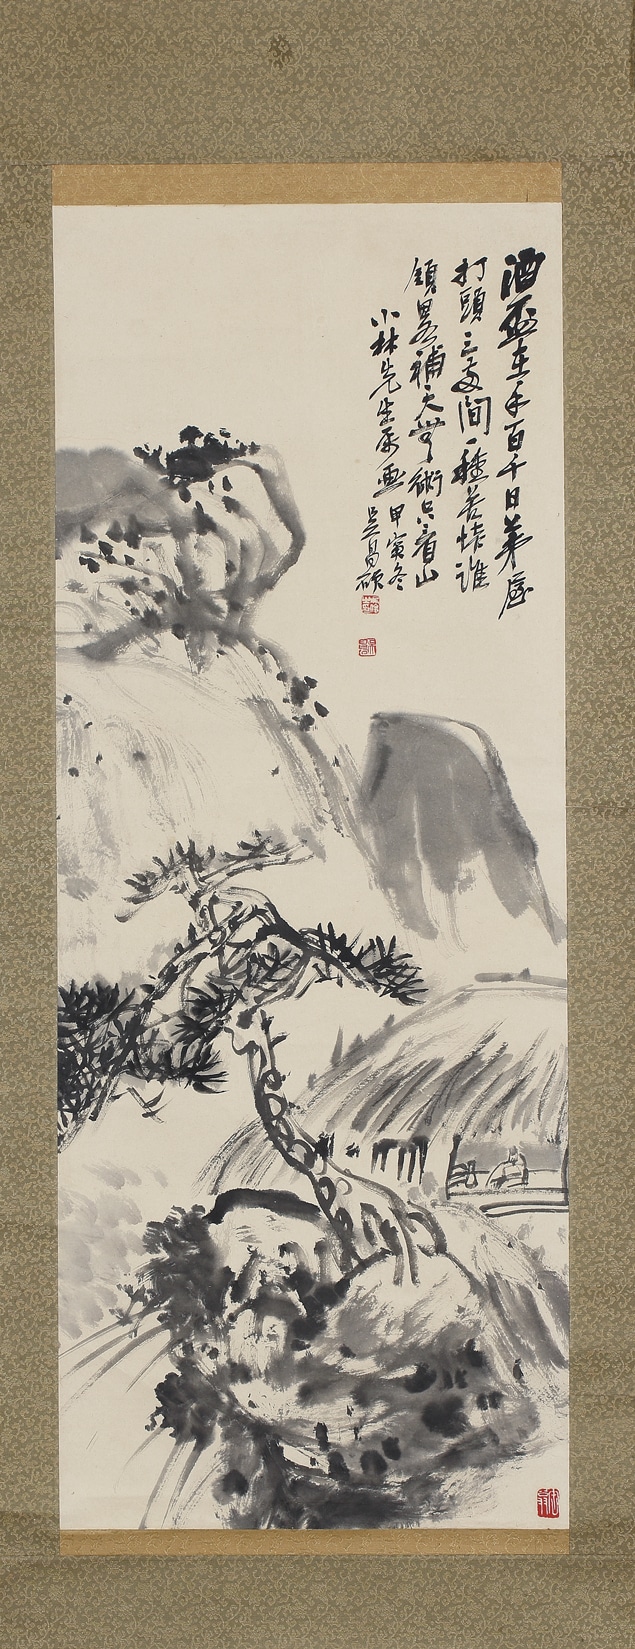 酒盃在手百千日茅屋
打頭三兩間一種苦情誰
領畧補天無術只看山
小林先生画甲寅冬
吳昌碩